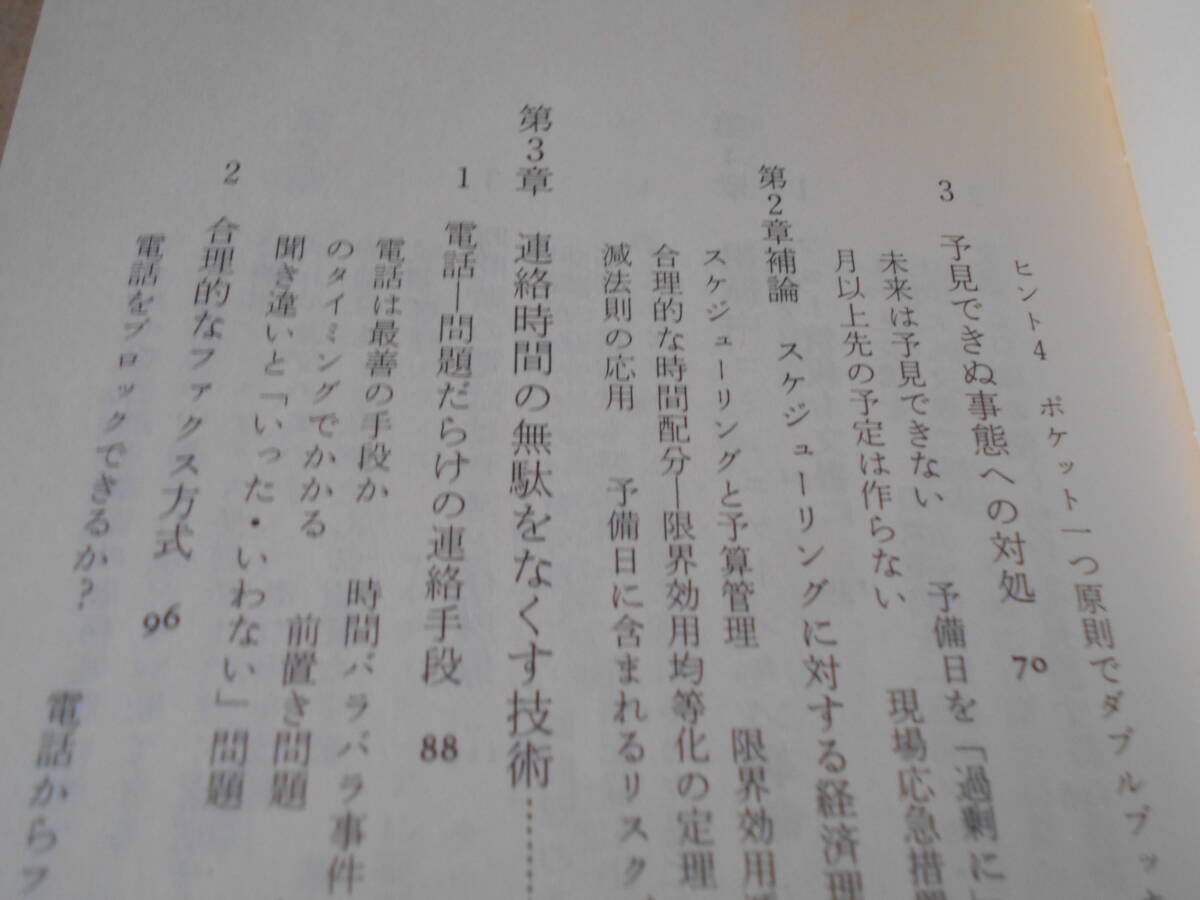 ヒント4 ポケット一つ原則でダブルブッキ
3 予見できぬ事態への対処 70
未来は予見できない 予備日を「過剰に」
月以上先の予定は作らない 現場応急措置
第2章補論 スケジューリングに対する経済理
スケジューリングと予算管理 限界効用
合理的な時間配分―限界効用均等化の定理
減法則の応用 予備日に含まれるリスク
第3章 連絡時間の無駄をなくす技術………
1 電話―問題だらけの連絡手段 88
電話は最善の手段か 時間バラバラ事件
のタイミングでかかる 前置き問題
聞き違いと「いった・いわない」問題
2 合理的なファクス方式 96
電話をブロックできるか? 電話からフ